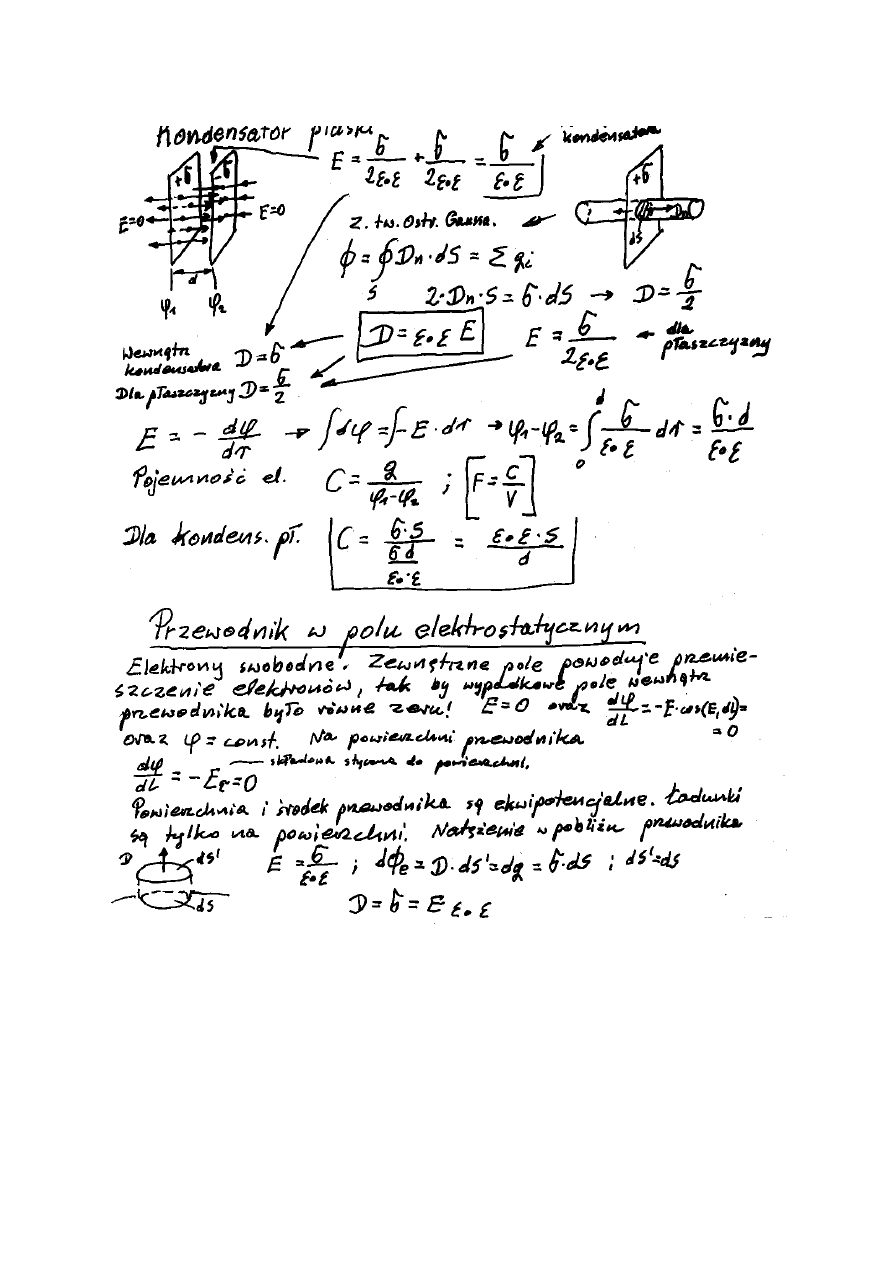 Kondensator płaski
E = σ/2ε₀ε + σ/2ε₀ε = σ/ε₀ε
kondensatora
+σ -σ
+σ
E=0 E=0
Dn
dS
d
φ₁ φ₂
z. tw. Ostr. Gaussa.
ϕ = ∮ Dn·dS = Σ qi
S
2·Dn·S = σ·dS → D = σ/2
Wewnątrz kondensatora D = σ
D = ε₀ε E
E = σ/2ε₀ε ← dla płaszczyzny
Dla płaszczyzny D = σ/2
E = - dφ/dr → ∫dφ = ∫- E·dr → φ₁-φ₂ = ∫₀ᵈ σ/ε₀ε dr = σ·d/ε₀ε
Pojemność el. C = q/φ₁-φ₂ ; [F = C/V]
Dla kondens. pł. C = σ·S/(σd/ε₀·ε) = ε₀ε·S/d
Przewodnik w polu elektrostatycznym
Elektrony swobodne. Zewnętrzne pole powoduje przemie-
szczenie elektronów, tak by wypadkowe pole wewnątrz
przewodnika było równe zeru! E=0 oraz dφ/dL = -E·cos(E,dl)=
= 0
oraz φ = const. Na powierzchni przewodnika
składowa styczna do powierzchni.
dφ/dL = -Eτ = 0
Powierzchnia i środek przewodnika są ekwipotencjalne. Ładunki
są tylko na powierzchni. Natężenie w pobliżu przewodnika
D dS'
dS
E = σ/ε₀ε ; dϕe = D·dS' = dq = σ·dS ; dS'=dS
D = σ = E ε₀ε